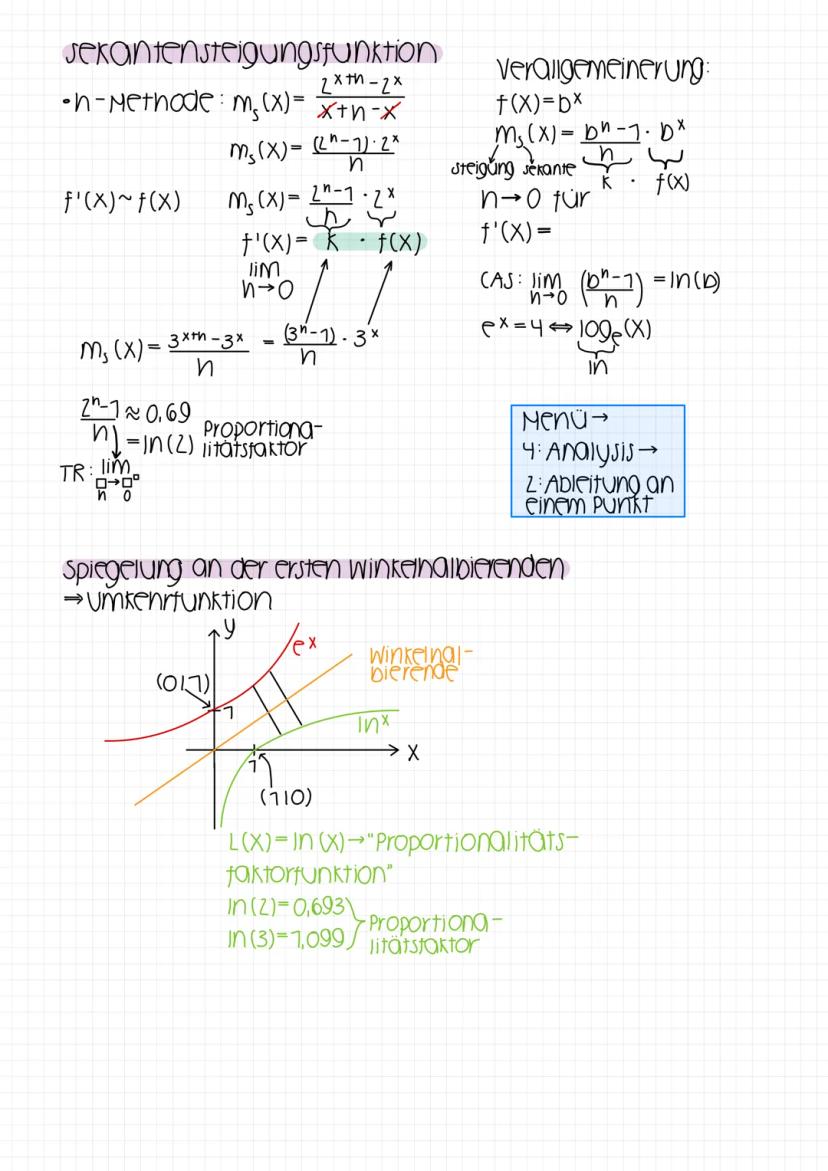 Sekantensteigungsfunktion
• h-Methode: mₛ(x) = (2ˣ⁺ʰ - 2ˣ)/(x+h-x)
mₛ(x) = ((2ʰ-1)·2ˣ)/h
f'(x) ~ f(x)
mₛ(x) = (2ʰ-1)/h · 2ˣ
f'(x) = k · f(x)
lim
h→0
mₛ(x) = (3ˣ⁺ʰ - 3ˣ)/h = (3ʰ-1)/h · 3ˣ
(2ʰ-1)/h ≈ 0,69
= ln(2) Proportiona-
litätsfaktor
TR: lim
□→□ □
h 0
Verallgemeinerung:
f(x) = bˣ
mₛ(x) = (bʰ-1)/h · bˣ
Steigung Sekante k · f(x)
h→0 für
f'(x) =
CAS: lim h→0 ((bʰ-1)/h) = ln(b)
eˣ = 4 ⇔ logₑ(x)
ln
Menü →
4: Analysis →
2: Ableitung an
einem Punkt
Spiegelung an der ersten Winkelhalbierenden
⇒ Umkehrfunktion
y
eˣ
Winkelhal-
bierende
(0|1)
1
lnˣ
x
1
(1|0)
L(x) = ln(x) → "Proportionalitäts-
faktorfunktion"
ln(2) = 0,693
ln(3) = 1,099
Proportiona-
litätsfaktor